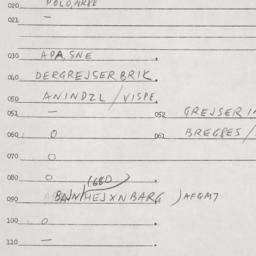 020 POLD, NRKE
021 —
030 APA, SNE
040 DERGREJSERBRIK
050 ANINDZL / VISPE
051 — 052 GREJSER I
060 O 061 BREGPES /
070 O
080 O (68D)
090 BAJN/HEJXNBARG ) AFGMT
100 O
110 —